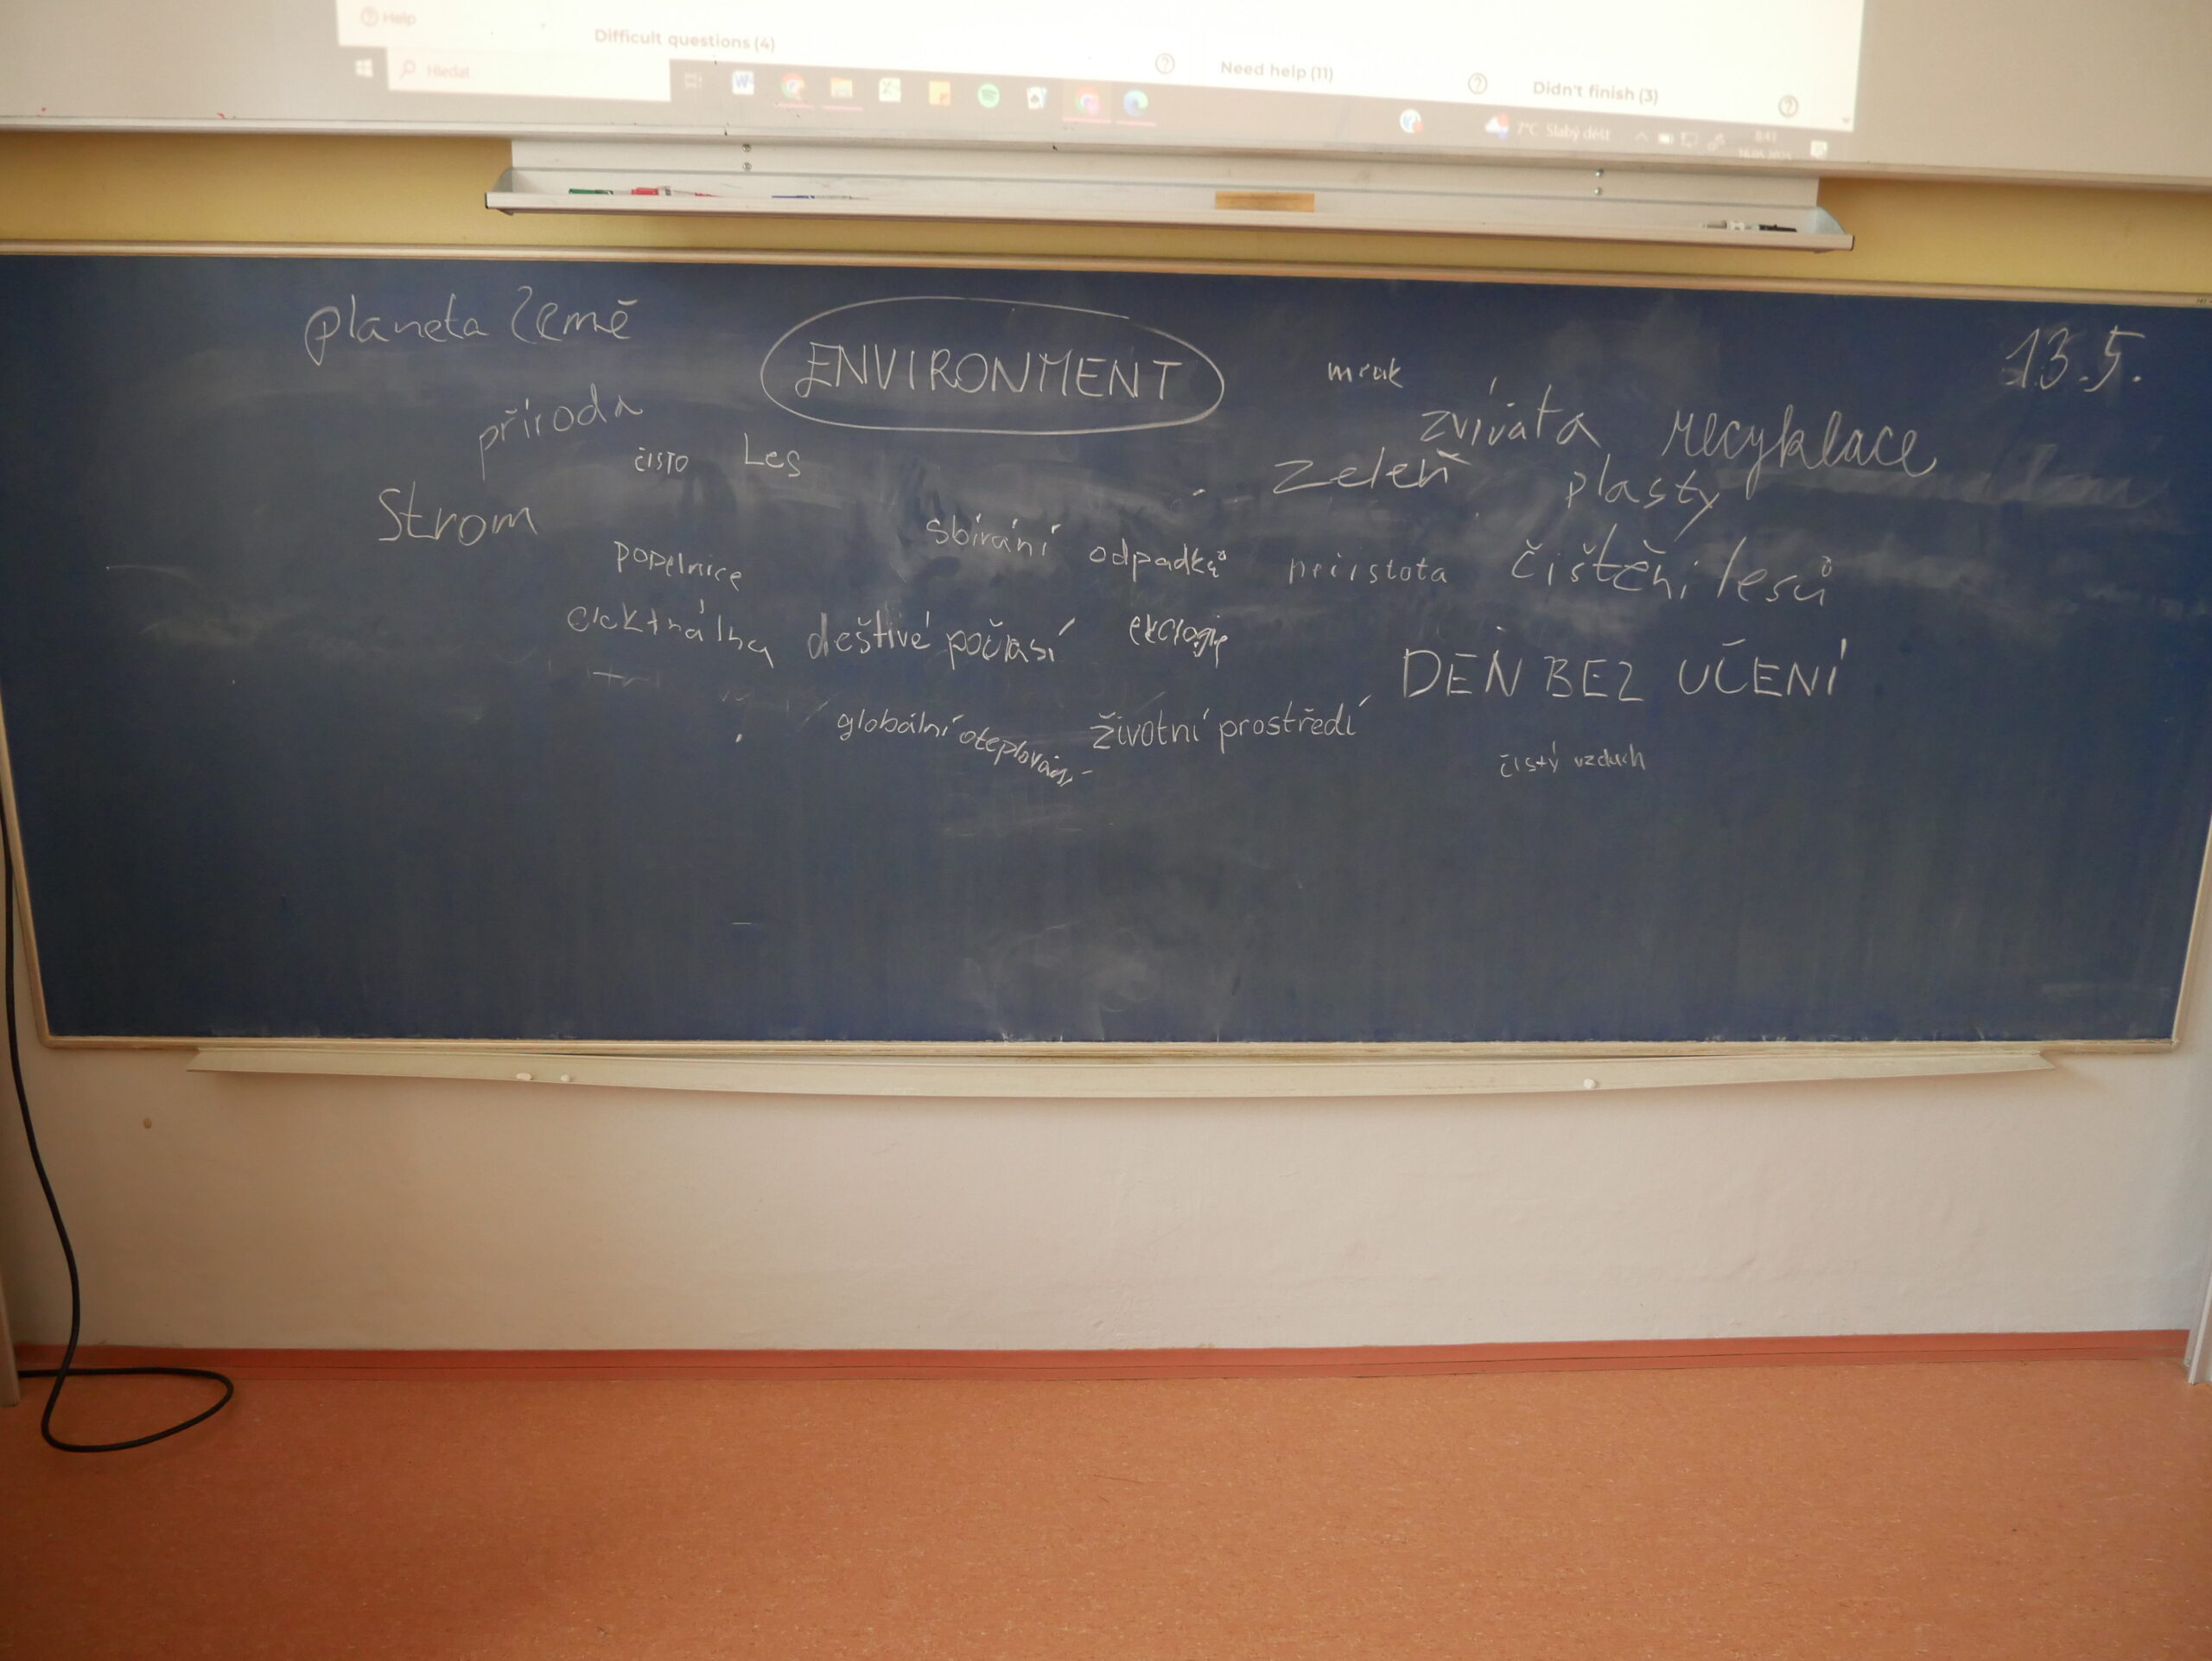 Help
Difficult questions (4)
Need help (11)
Didn't finish (3)
Hledat
7°C Slabý déšť
8:43
planeta Země
ENVIRONMENT
13.5.
mrak
příroda
zvířata
recyklace
čisto
Les
zeleň
plasty
Strom
sbírání odpadků
popelnice
čištění lesů
elektrárny
deštivé počasí
ekologie
DEŇ BEZ UČENÍ
globální oteplování
životní prostředí
čistý vzduch